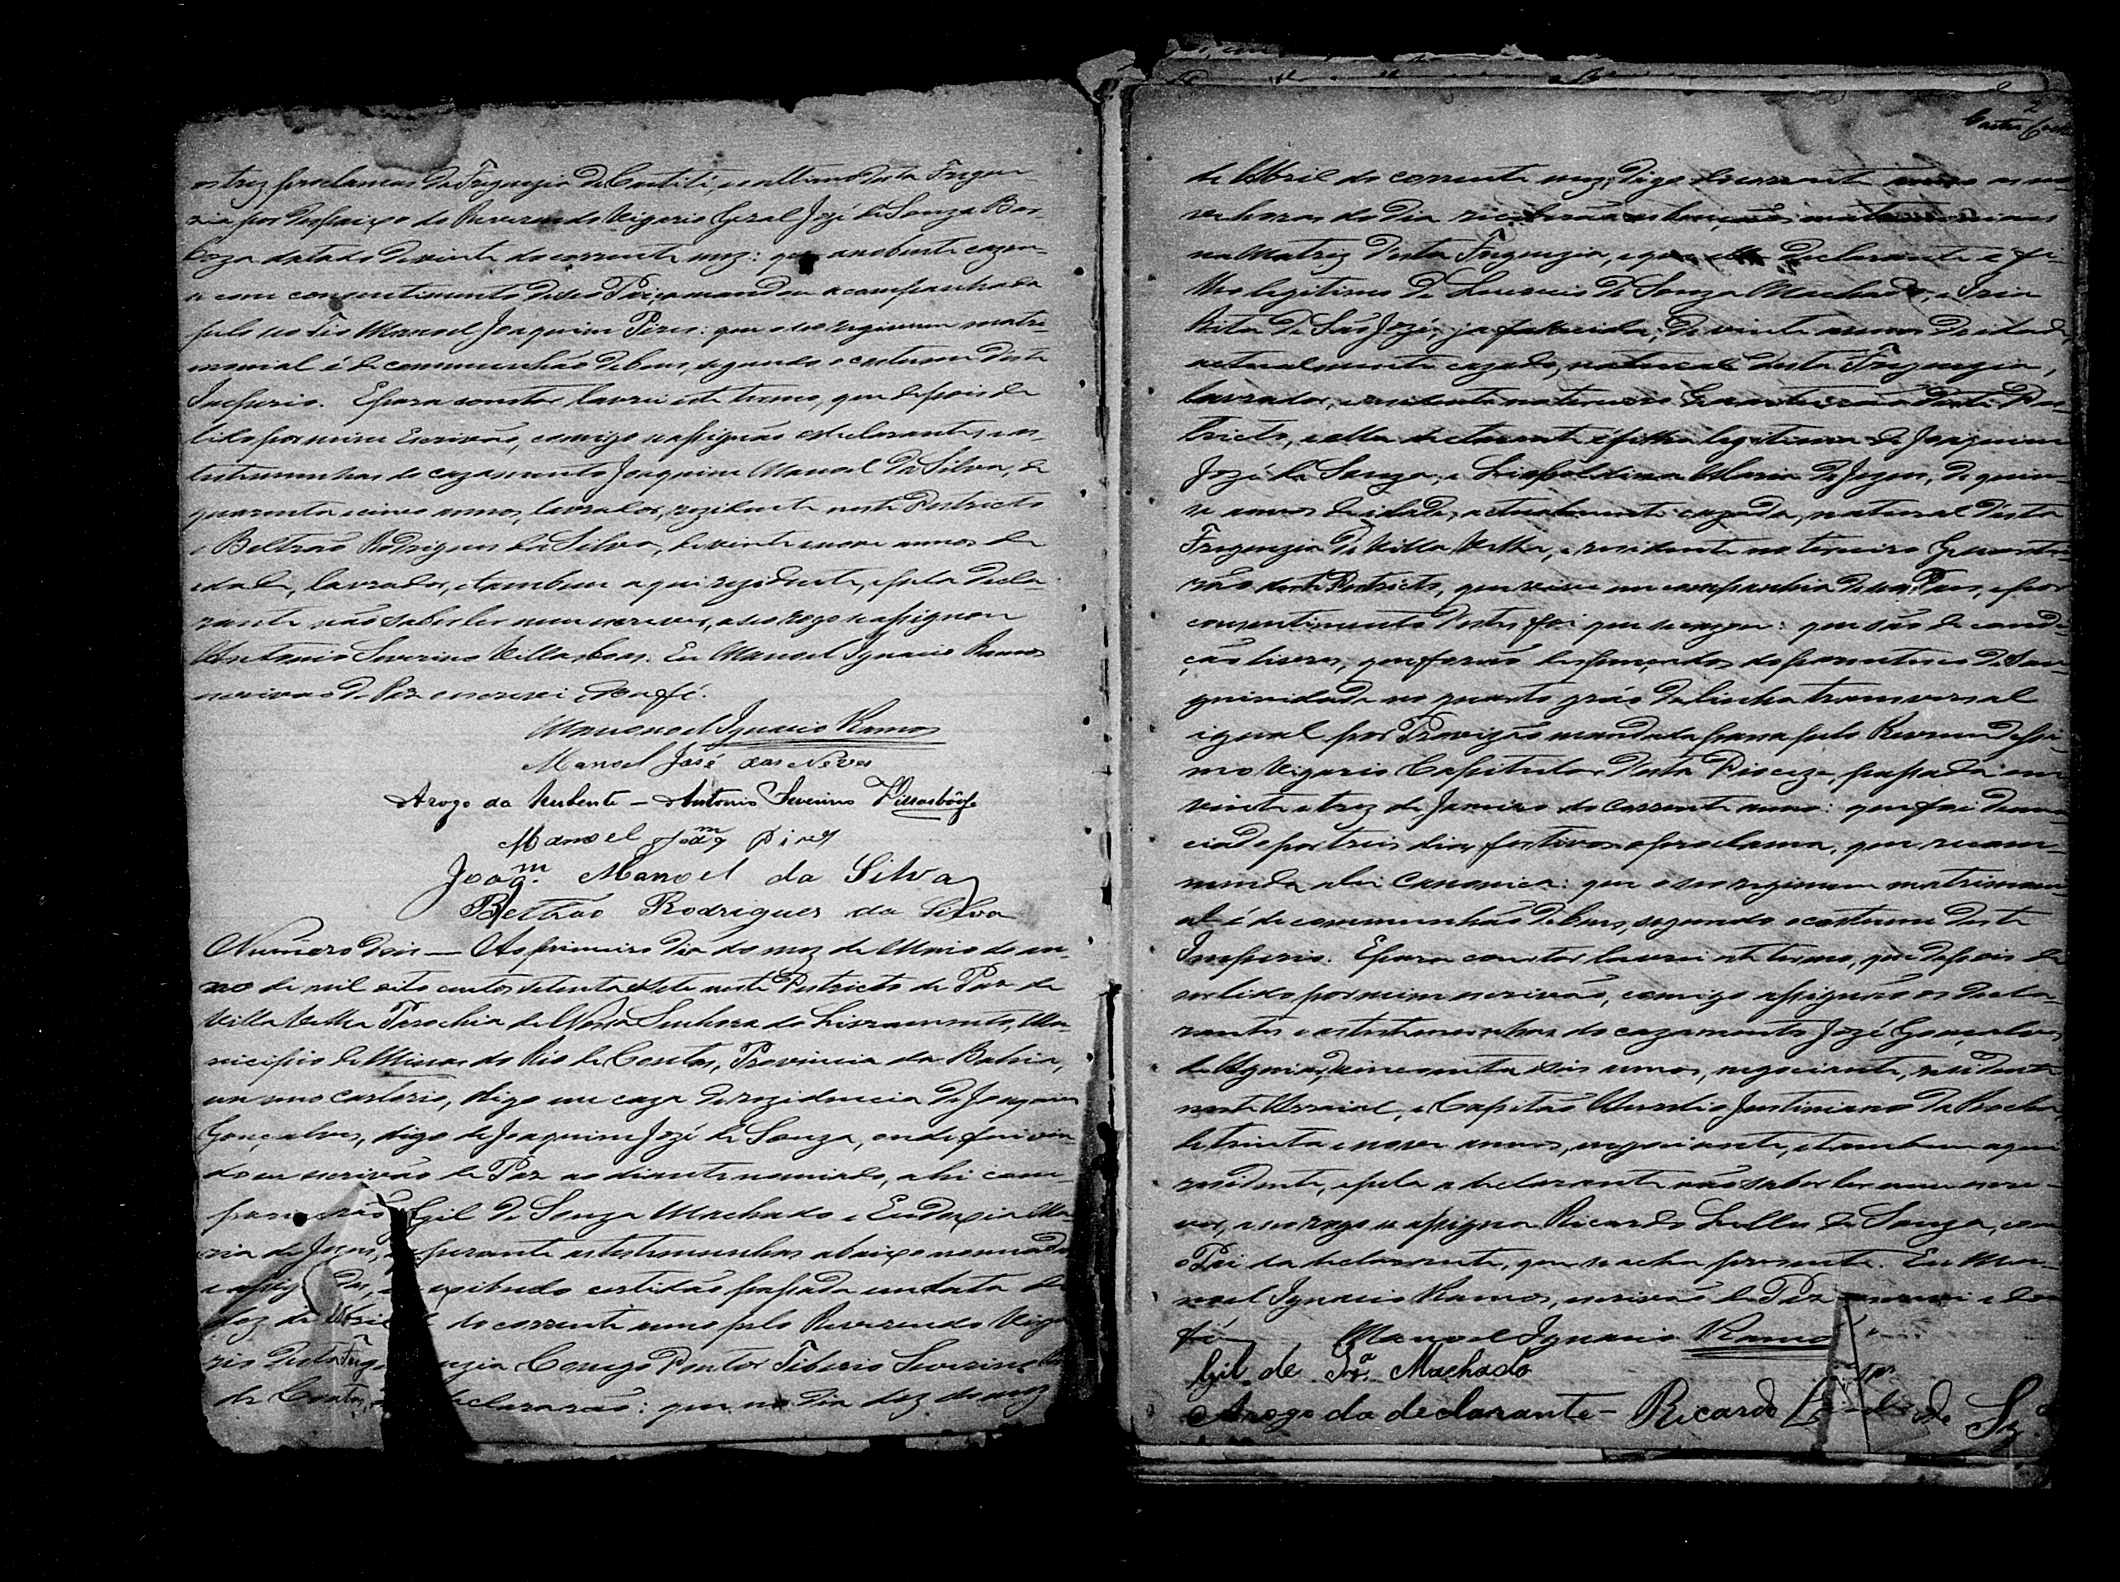 os trez proclamas da Freguezia de Caetité, e ultimo desta Fregue
zia por despaixo do Reverendo Vigario Geral Jozé de Souza Bar-
boza datado de vinte do corrente mez: que a nubente cazou-
se com consentimento de seo Pai, que a mandou acompanhada
pelo seo Tio Manoel Joaquim Pires: que o seo regimem matri-
monial é de communhão de bens, segundo o costume deste
Imperio. E para constar lavrei este termo, que depois de
lido por mim Escrivão, comigo assignão os declarantes e as
testemunhas do cazamento Joaquim Manoel da Silva, de
quarenta e cinco annos, lavrador, rezidente neste Districto
e Beltrão Rodrigues da Silva, de vinte e nove annos de
idade, lavrador, e tambem aqui rezidente, e pela decla-
rante não saber ler nem escrever, a seo rogo assignou
Antonio Severino Villasboas. Eu Manoel Ignacio Ramos
escrivão de Paz o escrevi e dou fé.
Manoel Ignacio Ramos
Manoel José das Neves
Arogo da Nubente - Antonio Severino Villasbôas
Manoel Joaqm Pires
Joaqm. Manoel da Silva
Beltrão Rodrigues da Silva
Numero dois — Ao primeiro dia do mez de Maio do an-
no de mil oito centos setenta e sete neste Districto de Paz de
Villa Velha Parochia de Nossa Senhora do Livramento, Mu-
nicipio de Minas do Rio de Contas, Provincia da Bahia,
em meo cartorio, digo em caza de rezidencia de Joaquim
Gonçalves, digo de Joaquim Jozé de Souza, onde fui vin
do eu escrivão de Paz ao diante nomeado, ahi com
parecerão Gil de Souza Machado e Eudoxia Ma-
ria de Jezus, e perante as testemunhas abaixo nomeadas
e assignadas, exibindo certidão passada em data de
dez de Abril do corrente anno pelo Reverendo Viga
rio desta Freguezia Conego Doutor Tiberio Severino Rio
de Contas, declararão: que no dia dez do mez
2
de Abril do corrente mez, digo do corrente anno as no-
ve horas do dia receberão as bençãos matrimoniaes
na Matriz desta Freguezia, e que elle declarante é fi-
lho legitimo de Lourenço de Souza Machado, e Iria
Rita de São Jozé, ja fallecida, de vinte annos de idade,
actualmente cazado, natural desta Freguezia,
lavrador, e residente no terceiro Quarteirão deste Des-
tricto, e ella declarante é filha legitima de Joaquim
Jozé de Souza, e Leopoldina Maria de Jezus, de quin-
ze annos de idade, actualmente cazada, natural desta
Freguezia de Villa Velha, e residente no terceiro Quartei-
rão deste Districto, que vive em companhia de seus Pais, e por
consentimento destes foi que se cazou: que são de condi-
ção livres, que forão dispençados do parentesco de San-
guinidade no quarto gráo da linha transversal
igual por Provizão mandada passar pelo Reverendissi-
mo Vigario Capitular desta Dioceze passada em
vinte e trez de Janeiro do corrente anno: que foi denun-
ciado por treis dias festivos o proclama, que recom-
menda a lei Canonica: que o seo regimem matrimoni-
al é de communhão de bens, segundo o costume deste
Imperio. E para constar lavrei este termo, que depois de
ser lido por mim escrivão, comigo assignão os decla-
rantes e as testemunhas do cazamento Jozé Gonçalves
de Aguiar, cincoenta e dois annos, negociante, residente
neste Arraial, e Capitão Aurelio Justiniano da Rocha
de trinta e nove annos, negociante, e tambem aqui
residente, e pela a declarante não saber ler nem escre-
ver, a seo rogo assigna Ricardo Lellis de Souza, com
o Pai da declarante, que se acha presente. Eu Ma-
noel Ignacio Ramos, escrivão de Paz o escrevi e dou
fé. Manoel Ignacio Ramos
Gil de Sz.a Machado
Arogo da declarante - Ricardo Lellis de Sz.a